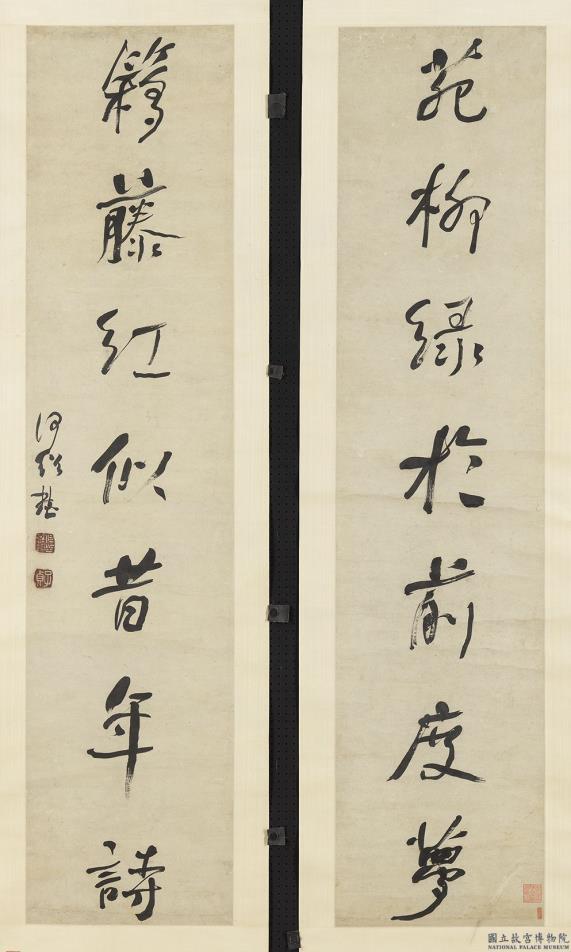 苑柳綠於前度夢
藤紅似昔年詩
何紹基
國立故宮博物院
NATIONAL PALACE MUSEUM